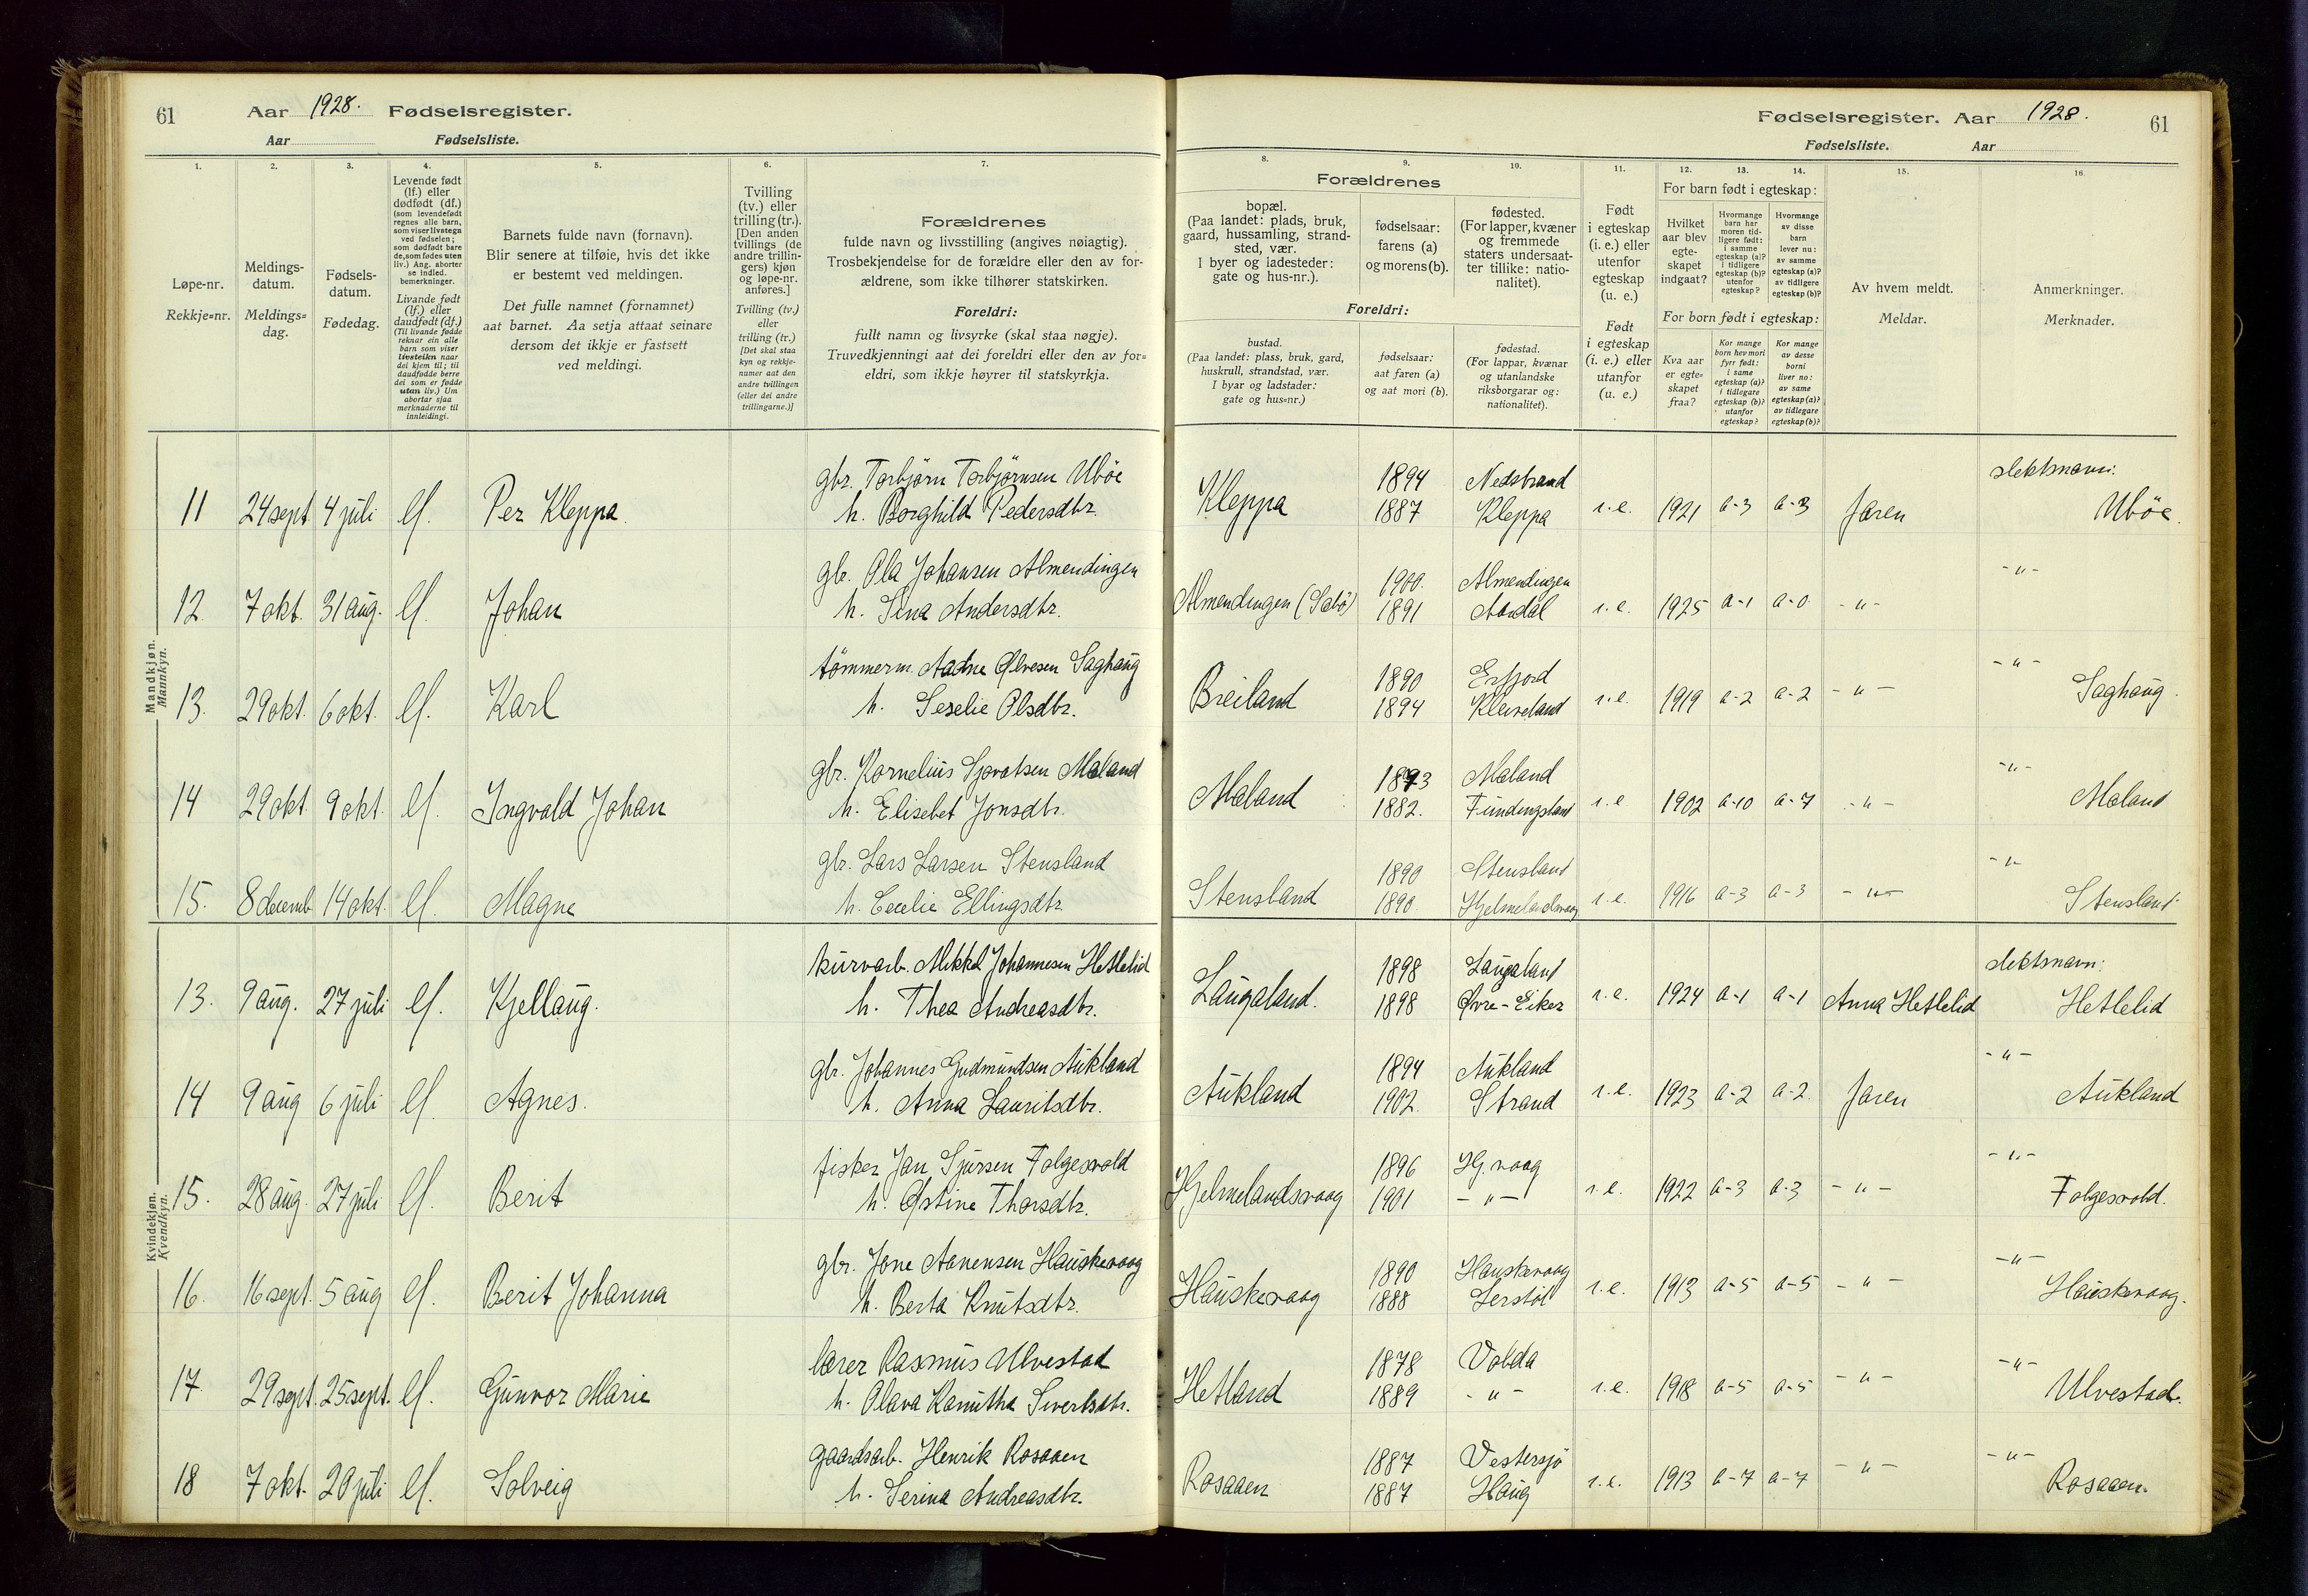 61 Aar 1928. Fødselsregister.
Aar Fødselsliste.
Fødselsregister. Aar 1928. 61
Fødselsliste. Aar
1. 2. 3. 4. 5. 6. 7.
8. 9. 10. 11. 12. 13. 14. 15. 16.
Løpe-nr.
Rekkje=nr.
Meldings-
datum.
Meldings=
dag.
Fødsels-
datum.
Fødedag.
Levende født
(lf.) eller
dødfødt (df.)
(som levendefødt
regnes alle barn,
som viser livstegn
ved fødselen;
som dødfødt bare
de, som fødes uten
liv.) Ang. aborter
se indled.
bemerkninger.
Livande født
(lf.) eller
daudfødt (df.)
(Til livande fødde
reknar ein alle
barn som viser
livsteikn naar
dei kjem til; til
daudfødde berre
dei som er fødde
utan liv.) Um
abortar sjaa
merknaderne til
innleidingi.
Barnets fulde navn (fornavn).
Blir senere at tilføie, hvis det ikke
er bestemt ved meldingen.
Det fulle namnet (fornamnet)
aat barnet. Aa setja attaat seinare
dersom det ikkje er fastsett
ved meldingi.
Tvilling
(tv.) eller
trilling (tr.).
[Den anden
tvillings (de
andre trillin-
gers) kjøn
og løpe-nr.
anføres.]
Tvilling (tv.)
eller
trilling (tr.)
[Det skal staa
kyn og rekkje-
numer aat den
andre tvillingen
(eller dei andre
trillingarne.)]
Forældrenes
fulde navn og livsstilling (angives nøiagtig).
Trosbekjendelse for de forældre eller den av for-
ældrene, som ikke tilhører statskirken.
Foreldri:
fullt namn og livsyrke (skal staa nøgje).
Truvedkjenningi aat dei foreldri eller den av for=
eldri, som ikkje høyrer til statskyrkja.
Forældrenes
bopæl.
(Paa landet: plads, bruk,
gaard, hussamling, strand-
sted, vær.
I byer og ladesteder:
gate og hus-nr.).
fødselsaar:
farens (a)
og morens (b).
fødested.
(For lapper, kvæner
og fremmede
staters undersaat-
ter tillike: natio-
nalitet).
Foreldri:
bustad.
(Paa landet: plass, bruk, gard,
huskrull, strandstad, vær.
I byar og ladstader:
gate og hus=nr.)
fødselsaar:
aat faren (a)
og aat mori (b).
fødestad.
(For lappar, kvænar
og utanlandske
riksborgarar og:
nationalitet).
Født
i egteskap
(i. e.) eller
utenfor
egteskap
(u. e.)
Født
i egteskap
(i. e.) eller
utanfor
(u. e.)
For barn født i egteskap:
Hvilket
aar blev
egte-
skapet
indgaat?
Hvormange
barn har
moren tid-
ligere født:
i samme
egteskap (a)?
i tidligere
egteskap (b)?
utenfor
egteskap?
Hvormange
av disse
barn
lever nu:
av samme
egteskap (a)?
av tidligere
egteskap (b)?
For born født i egteskap:
Kva aar
er egte=
skapet
fraa?
Kor mange
born hev mori
fyrr født:
i same
egteskap (a)?
i tidlegare
egteskap (b)?
utanfor
egteskap?
Kor mange
av desse
borni
liver no:
av same
egteskap (a)?
av tidlegare
egteskap (b)?
Av hvem meldt.
Meldar.
Anmerkninger.
Merknader.
Mandkjøn.
Mannkyn.
gbr. Torbjörn Torbjörnsen Uböe 1894 Nedstrand slektsnavn:
11 24 sept. 4 juli lf. Per Kleppa. h. Borghild Pedersdtr. Kleppa 1887 Kleppa i.e. 1921 a-3 a-3 faren Uböe.
gbr. Ola Johansen Almendingen 1900. Almendingen -"-
12. 7 okt. 31 aug. lf. Johan h. Sina Andersdtr. Almendingen (Sæbö) 1891 Aardal i.e. 1925 a-1 a-0 -"-
tömmerm. Aadne Ølvesen Saghaug 1890 Erfjord -"-
13. 29 okt. 6 okt. lf. Karl h. Seselie Olsdtr. Breiland 1894 Kleiveland i.e. 1919 a-2 a-2 -"- Saghaug.
gbr. Kornelius Sjovatsen Maland 1873 Maland -"-
14 29 okt. 9 okt. lf. Ingvald Johan h. Elisebet Jonsdtr. Maland 1882. Fundingsland i.e 1902 a-10 a-7 -"- Maland
gbr. Lars Larsen Stensland 1890 Stensland -"-
15. 8 decemb 14 okt. lf. Magne h. Cecelie Ellingsdtr. Stensland 1890 Hjelmelandsvaag i.e. 1916 a-3 a-3 -"- Stensland
Kvindekjøn.
Kvendkyn.
kurvarb. Mikkel Johannesen Hetlelid 1898 Laugaland slektsnavn:
13. 9 aug. 27 juli lf. Kjellaug. h. Thea Andreasdtr. Laugaland. 1898 Øvre-Eiker i.e. 1924 a-1 a-1 Anna Hetlelid Hetlelid
gbr. Johannes Gudmundsen Aukland 1894 Aukland -"-
14 9 aug 6 juli lf. Agnes. h. Anna Lauritsdtr. Aukland 1902. Strand i.e. 1923 a-2 a-2 faren Aukland
fisker Jan Sjursen Folgesvold 1896 Hj.vaag -"-
15. 28 aug. 27 juli lf. Berit h. Østine Thorsdtr. Hjelmelandsvaag 1901 -"- i.e. 1922 a-3 a-3 -"- Folgesvold.
gbr. Jone Aanensen Hauskevaag 1890 Hauskevaag -"-
16. 16 sept. 5 aug lf. Berit Johanna h. Berta Knutsdtr. Hauskevaag 1888 Jerstöl i.e. 1913 a-5 a-5 -"- Hauskevaag.
lærer Rasmus Ulvestad 1878 Volda -"-
17. 29 sept. 25 sept. lf. Gunvor Marie h. Olava Kanutha Sivertsdtr. Hetland 1889 -"- i.e. 1918 a-5 a-5 -"- Ulvestad.
gaardsarb. Henrik Rosaaen 1887 Vestersjö -"-
18 7 okt. 20 juli lf. Solveig h. Serina Andreasdtr. Rosaaen 1887 Haug i.e. 1913 a-7 a-7 -"- Rosaaen.